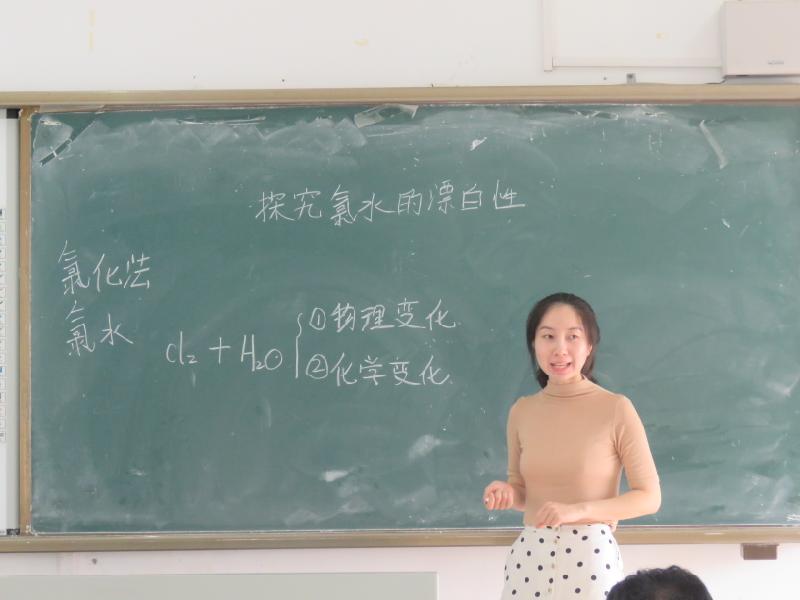 探究氯水的漂白性
氯化法
氯水
Cl₂+H₂O
①物理变化
②化学变化